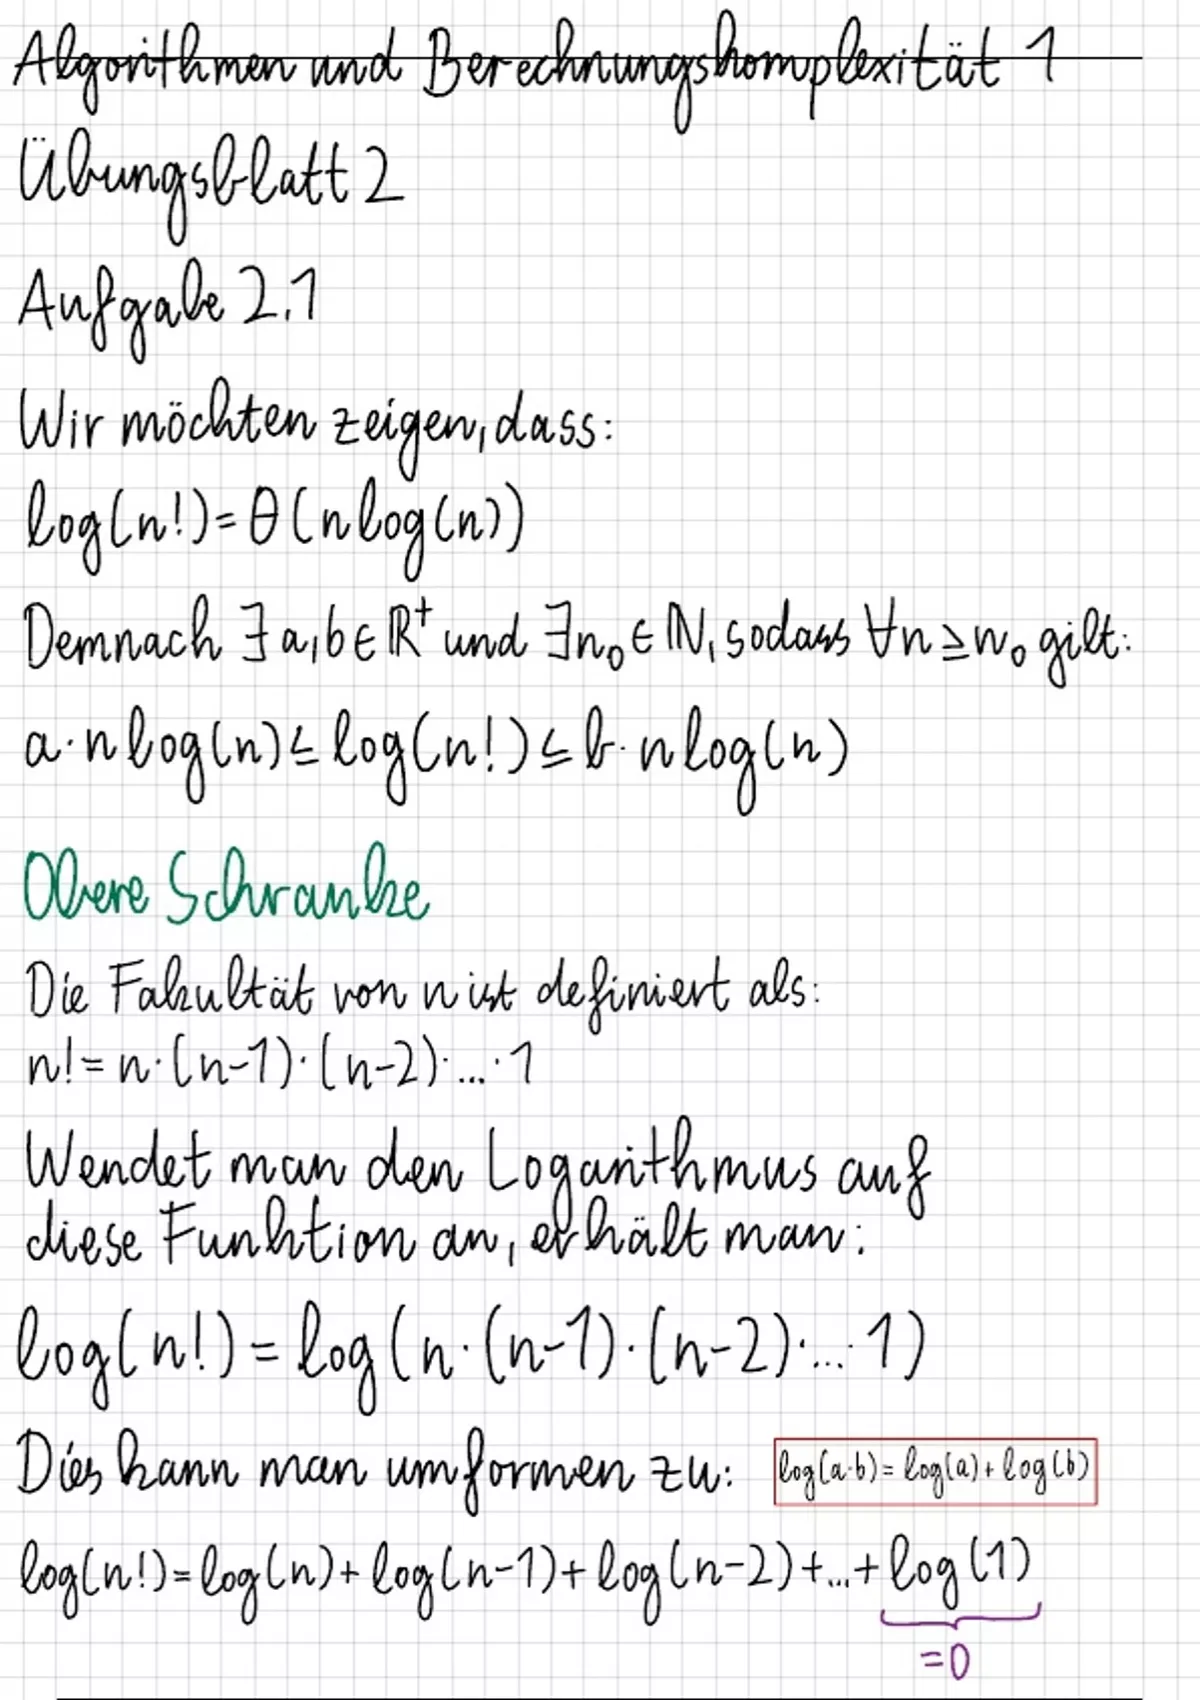 Algorithmen und Berechnungskomplexität 1
Übungsblatt 2
Aufgabe 2.1
Wir möchten zeigen, dass:
log(n!) = θ(n log(n))
Demnach ∃ a, b ∈ ℝ⁺ und ∃n₀ ∈ ℕ, sodass ∀n ≥ n₀ gilt:
a · n log(n) ≤ log(n!) ≤ b · n log(n)
Obere Schranke
Die Fakultät von n ist definiert als:
n! = n · (n-1) · (n-2) · ... · 1
Wendet man den Logarithmus auf
diese Funktion an, erhält man:
log(n!) = log(n · (n-1) · (n-2) · ... · 1)
Dies kann man umformen zu: log(a·b) = log(a) + log(b)
log(n!) = log(n) + log(n-1) + log(n-2) + ... + log(1)
= 0